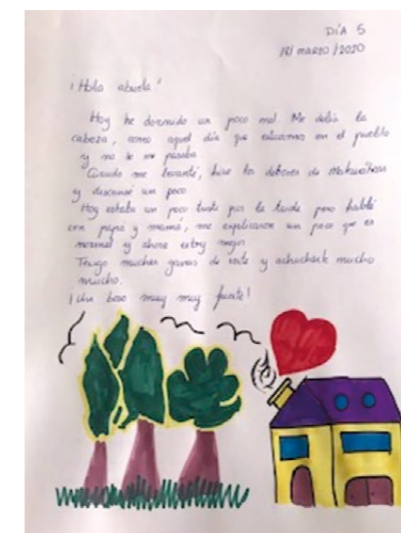 DÍA 5
18/ marzo /2020
¡Hola abuela!
Hoy he dormido un poco mal. Me dolía la
cabeza, como aquel día que estuvimos en el pueblo
y no se me pasaba.
Cuando me levanté, hice los deberes de Matemáticas
y descansé un poco.
Hoy estaba un poco triste por la tarde pero hablé
con papá y mamá, me explicaron un poco que es
normal y ahora estoy mejor.
Tengo muchas ganas de verte y achucharte mucho
mucho.
¡Un beso muy muy fuerte!